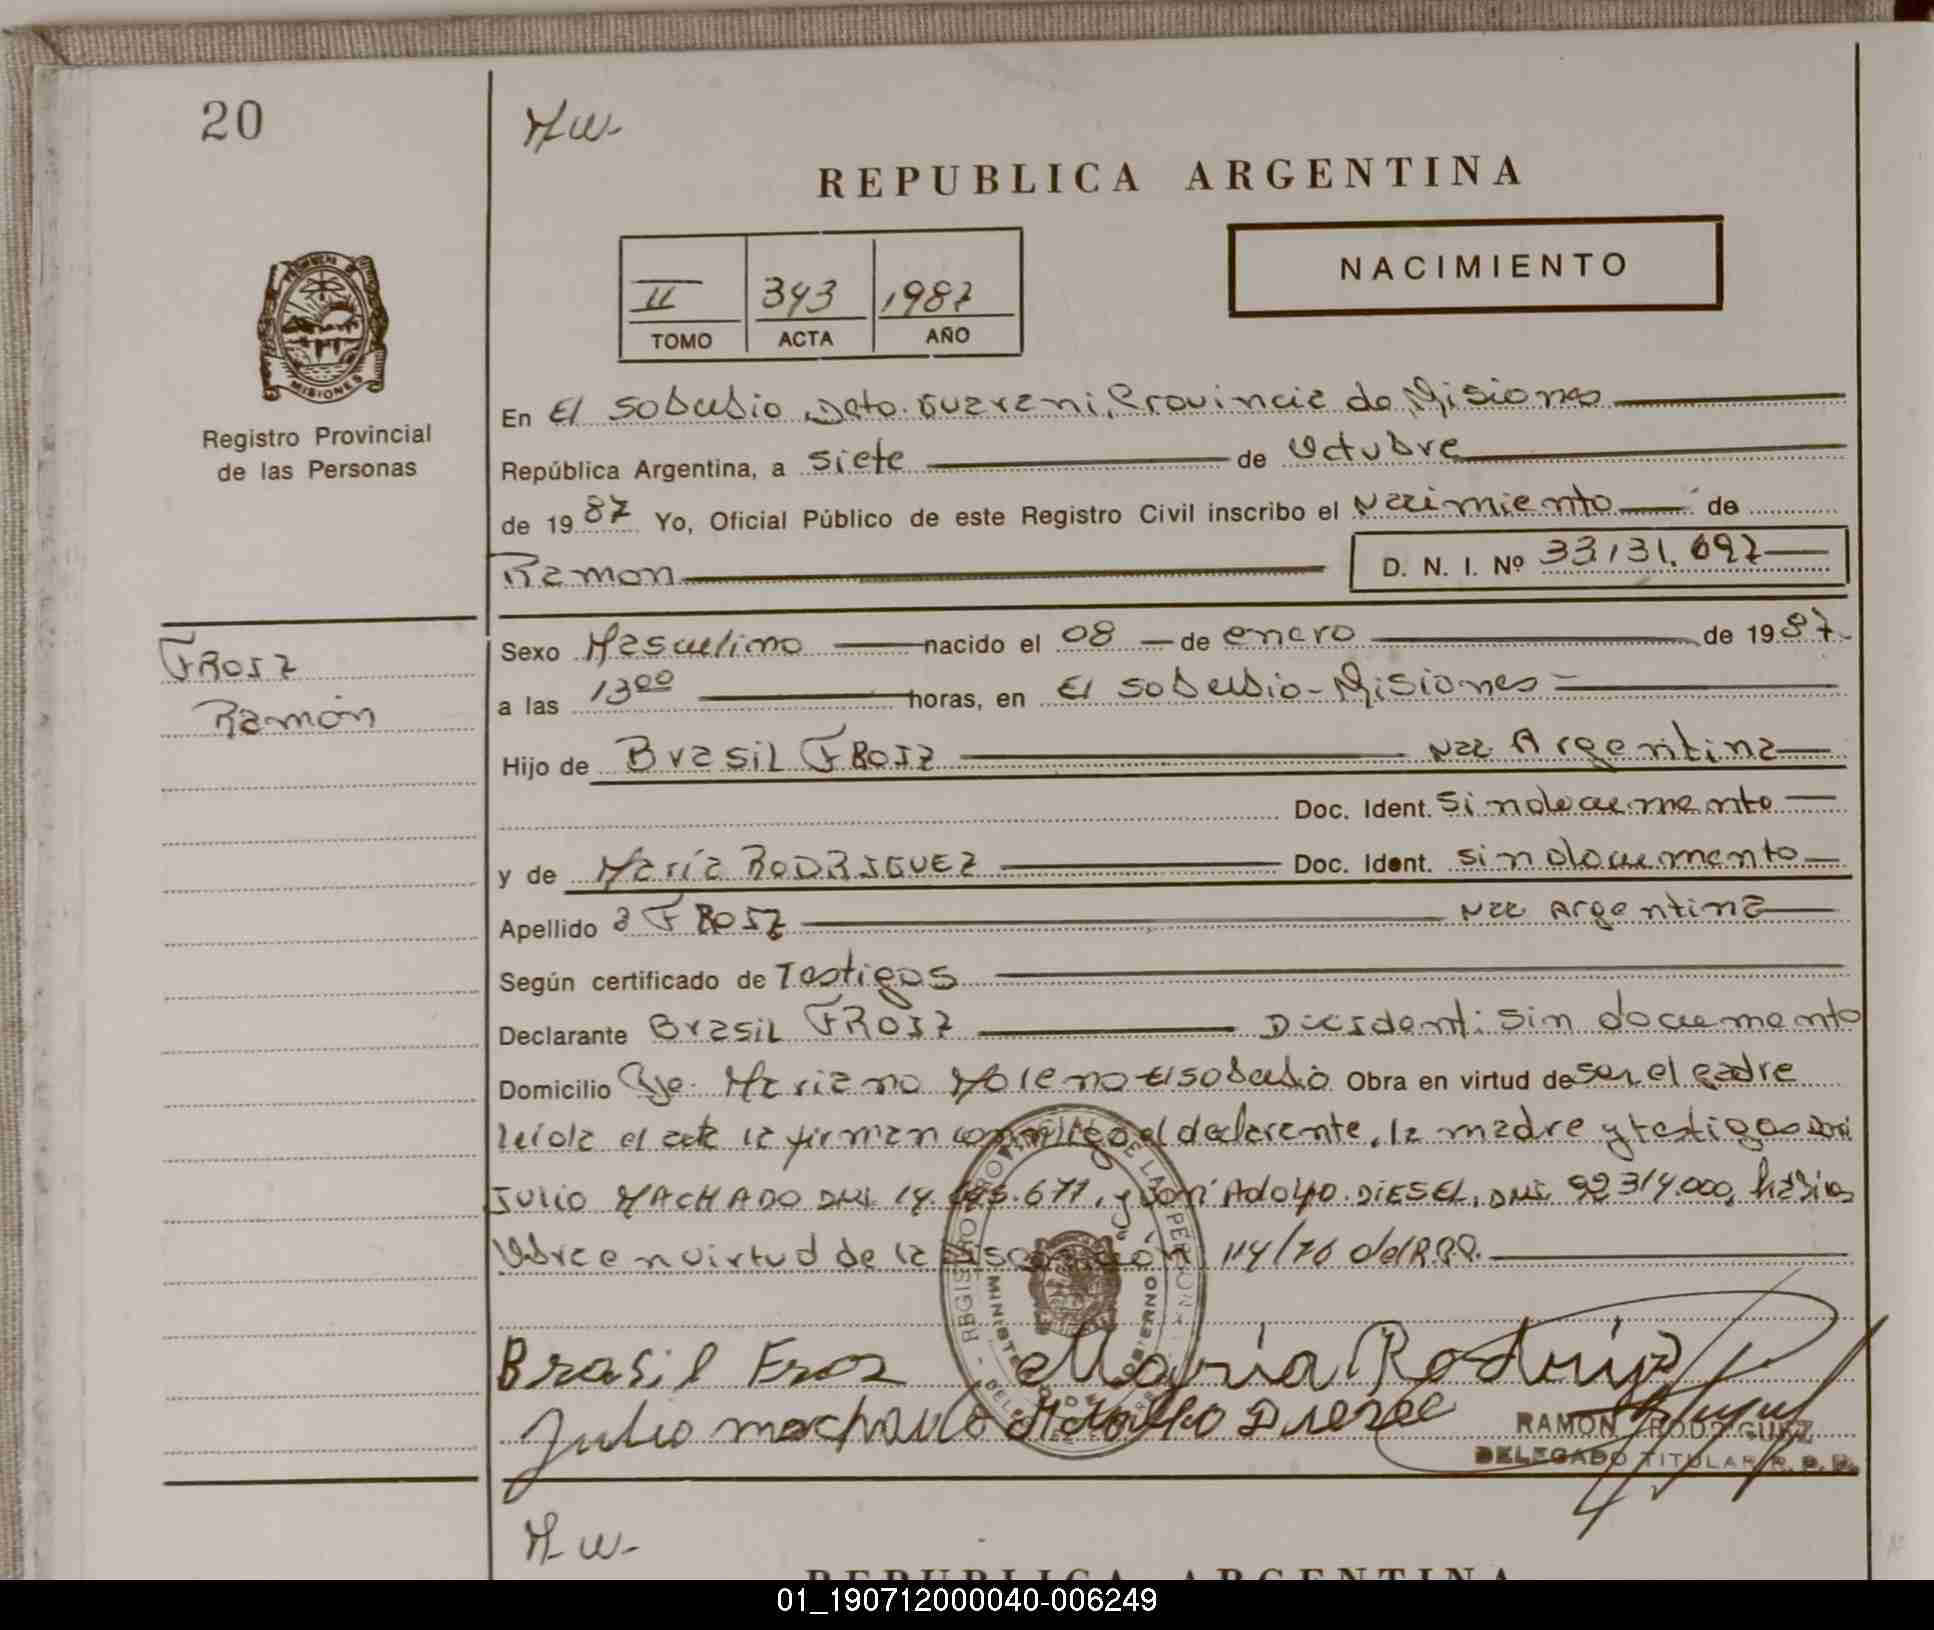 20
REPUBLICA ARGENTINA
NACIMIENTO
II 343 1987
TOMO ACTA AÑO
PROVINCIA DE
MISIONES
Registro Provincial
de las Personas
En El Soberbio, Dpto. Guarani, Provincia de Misiones
República Argentina, a siete de Octubre
de 1987 Yo, Oficial Público de este Registro Civil inscribo el Nacimiento de
Ramon D. N. I. Nº 33.131.697
FROIZ
Ramón
Sexo Masculino nacido el 08 de enero de 1987
a las 13 00 horas, en El Soberbio - Misiones
Hijo de Brasil FROIZ Nac Argentina
Doc. Ident. Sin documento
y de María RODRIGUEZ Doc. Ident. sin documento
Apellido a FROIZ Nac Argentina
Según certificado de Testigos
Declarante Brasil FROIZ Doc Ident: Sin documento
Domicilio Pje. Mariano Moreno El Soberbio Obra en virtud de ser el padre
leída el acta la firman conmigo el declarante, la madre y testigos Don
JULIO MACHADO DNI 14. .677, y Don Adolfo DIESEL, DNI 92.314.000, hábiles
Obra en virtud de la 114/76 del R.P.P.
Brasil Froz María Rodriguez
Julio machado Adolfo Diesel
RAMON RODRIGUEZ
DELEGADO TITULAR R. P. P.
REPUBLICA ARGENTINA
01_190712000040-006249